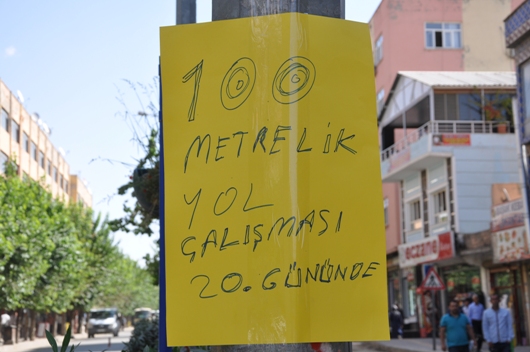 100
METRELİK
YOL
ÇALIŞMASI
20. GÜNÜNDE
eczane